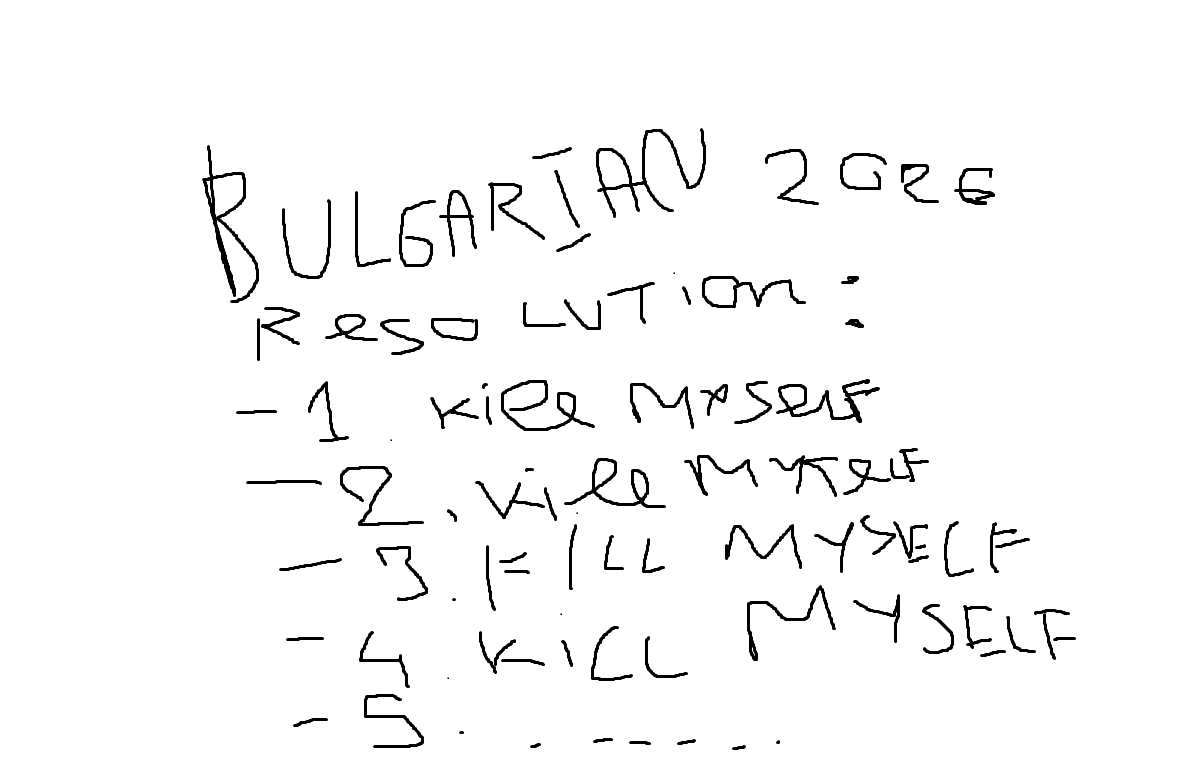 BULGARIAN 2026
Resolution:
- 1. Kill Myself
- 2. Kill Myself
- 3. KILL MYSELF
- 4. KILL MYSELF
- 5. . - - - - .